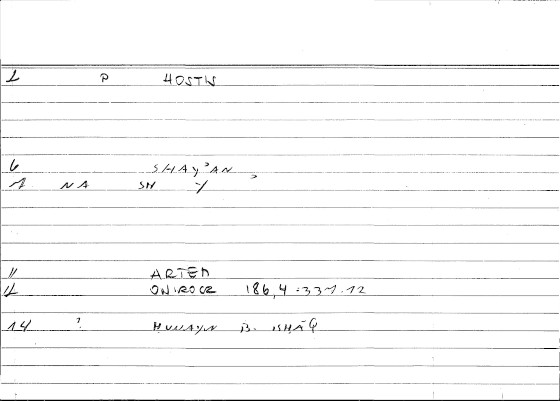 1 P HOSTIS
6 SHAYʾAN
7 NA SH Y ʾ
11 ARTEM
12 ONIROCR 186,4 = 331.12
14 ? ḤUNAYN B. ISḤĀQ